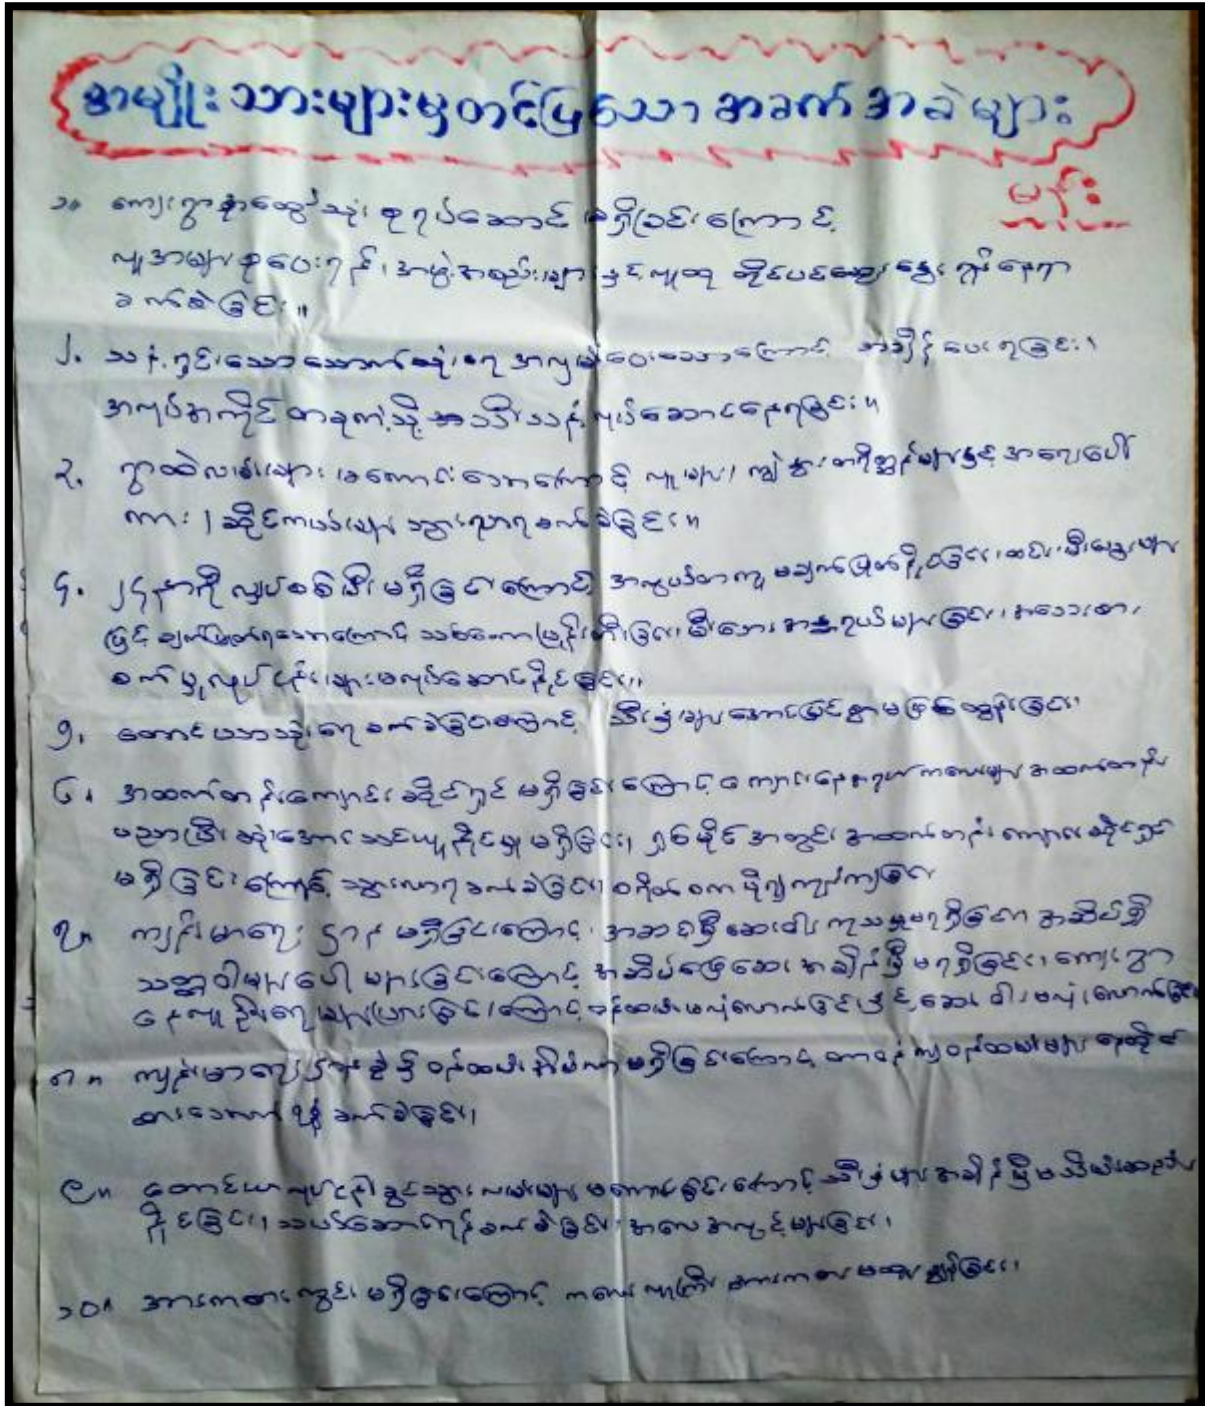 အမျိုးသားများမှတင်ပြသော အခက်အခဲများ
မကုန်း
၁။ ကျေးရွာ စုရပ်ဆောင် မရှိခြင်းကြောင့်
လူအများစုဝေးရန်၊ အဖွဲ့အစည်းများနှင့်လူထု ဆိုင်ပင်ဆွေးနွေးရန်နေရာ
ခက်ခဲခြင်း။
၂. သန့်ရှင်းသောသောက်သုံးရေ အလှမ်းဝေးသောကြောင့် အချိန်ပေးရခြင်း၊
အလုပ်အကိုင်
၃. ရွာထဲလမ်းများ မကောင်းသောကြောင့် လူများ၊ ကျွဲနွားတရိစ္ဆာန်များနှင့် အလေးပေါ့
ကား၊ ဆိုင်ကယ်များ သွားလာရခက်ခဲခြင်း။
၄. ၂၄နာရီ လျှပ်စစ်မီး မရှိခြင်းကြောင့် မချက်ပြုတ်နိုင်ခြင်း၊ ထင်းမီးသွေးများ
ဖြင့် ချက်ပြုတ်ရသောကြောင့် သစ်တောပြုန်းတီးခြင်း၊ မီးဘေးအန္တရာယ်များခြင်း၊ အသေးစား
စက်မှုလုပ်ငန်းများမလုပ်ဆောင်နိုင်ခြင်း။
၅. တောင်ယာသုံးရေ ခက်ခဲခြင်းကြောင့် သီးနှံများအောင်မြင်စွာမဖြစ်ထွန်းခြင်း၊
၆. အထက်တန်းကျောင်း ဆိုင်ရှင် မရှိခြင်းကြောင့် ကျောင်းနေအရွယ်ကလေးများ အထက်တန်း
ပညာပြီးဆုံးအောင် သင်ယူနိုင်မှု မရှိခြင်း၊ ရှစ်မိုင် အတွင်း အထက်တန်း ကျောင်းဆိုင်ရှင်
မရှိခြင်းကြောင့် သွားလာရခက်ခဲခြင်း၊ စရိတ်စကပို၍ကုန်ကျခြင်း
၇။ ကျန်းမာရေးဌာန မရှိခြင်းကြောင့် အချိန်မှီဆေးဝါးကုသမှုမရရှိခြင်း၊ အဆိပ်ရှိ
သတ္တဝါများပေါများခြင်းကြောင့် အဆိပ်ဖြေဆေး အချိန်မှီ မရရှိခြင်း၊ ကျေးရွာ
နေလူဦးရေများပြားခြင်းကြောင့် ဝန်ထမ်းမလုံလောက်ခြင်းနှင့် ဆေးဝါးမလုံလောက်ခြင်း
၈။ ကျန်းမာရေးဌာနခွဲရှိ ဝန်ထမ်းအိမ်ယာမရှိခြင်းကြောင့် တာဝန်ကျဝန်ထမ်းများ နေထိုင်
ခက်ခဲခြင်း၊
၉။ တောင်ယာလုပ်ငန်းခွင်သွား လမ်းများ မကောင်းခြင်းကြောင့် သီးနှံများ အချိန်မှီမသိမ်းဆည်း
နိုင်ခြင်း၊ သယ်ဆောင်ရန်ခက်ခဲခြင်း၊ အလေအလွင့်များခြင်း၊
၁၀။ အားကစားကွင်း မရှိခြင်းကြောင့် ကလေးလူကြီး အားကစား မထွန်းခြင်း၊